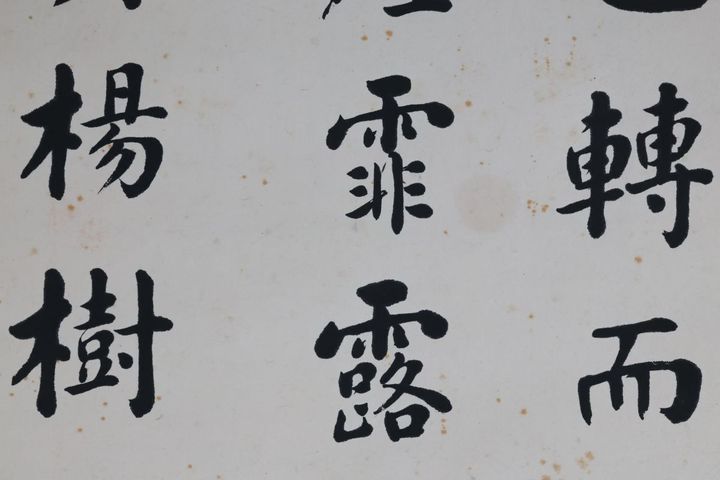 轉而
霏露
楊樹